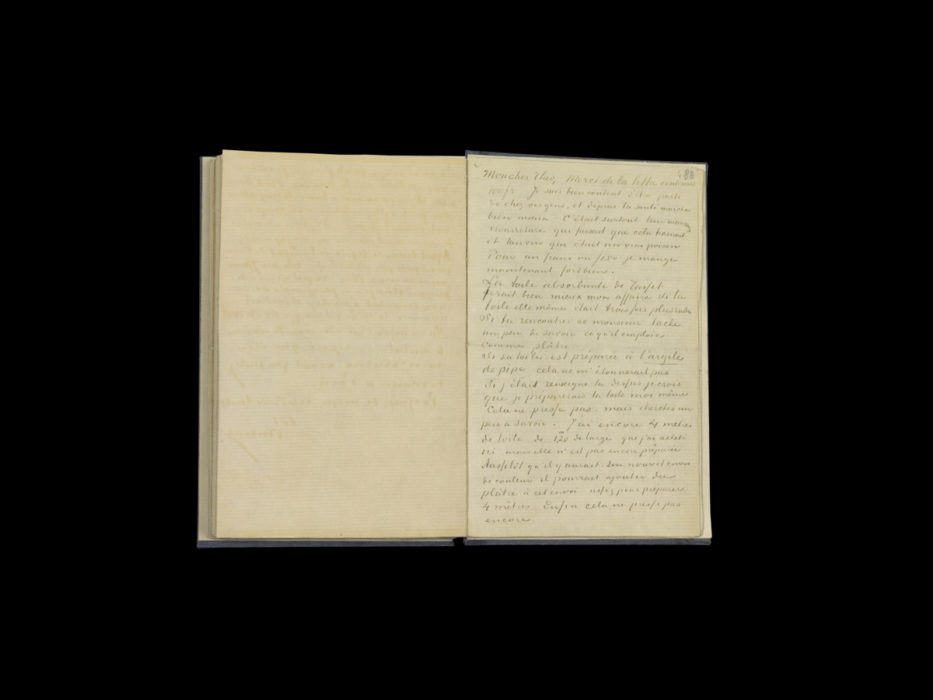 Mon cher Theo, Merci de ta lettre contenant
100 fr. Je suis bien content d'être parti
de chez ces gens, et depuis la santé marche
bien mieux. C'était surtout leur mauv
nourriture qui faisait que cela trainait
et leur vin que était un vrai poison
Pour un franc ou 1.50 je mange
maintenant fort bien.
La toile absorbante de Tasset
ferait bien mieux mon affaire si la
toile elle même était trois fois plus rude
Si tu rencontres ce monsieur tache
un peu de savoir ce qu'il emploie
comme plâtre
Si sa toile est préparée à l'argile
de pipe cela ne m'étonnerait pas
Si j'étais renseigné la dessus je crois
que je préparerais la toile moi même
Cela ne presse pas. mais cherches un
peu à savoir. J'ai encore 4 mètres
de toile de 1.20 de large que j'ai acheté
ici mais elle n'est pas encore préparée
Aussitôt qu'il y aurait un nouvel envoi
de couleur il pourrait ajouter du
plâtre à cet envoi assez pour préparer
4 mètres. Enfin cela ne presse pas
encore